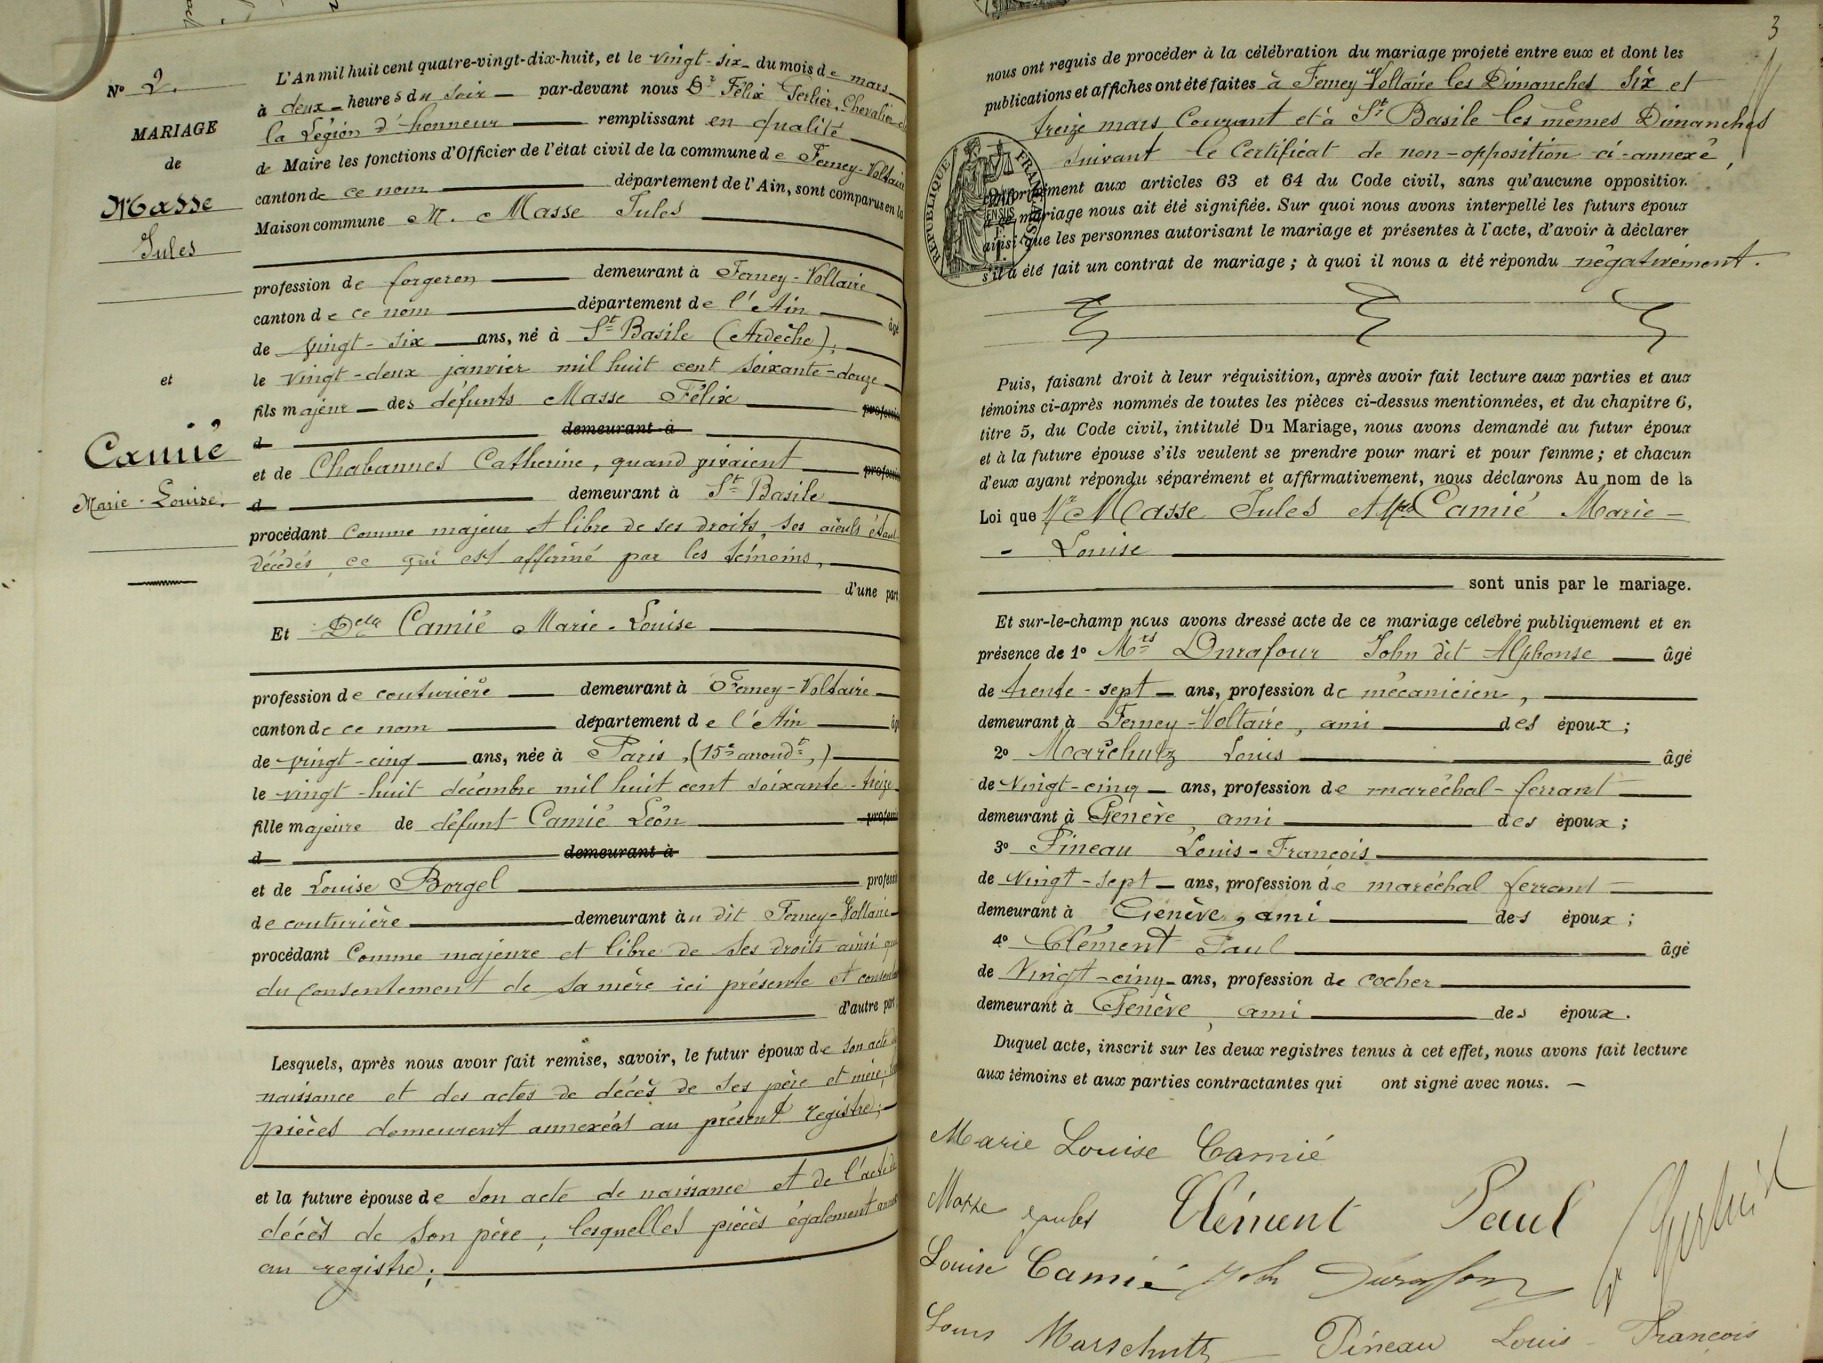 No 2.
MARIAGE
de
Masse
Jules
et
Camié
Marie-Louise.
L'An mil huit cent quatre-vingt-dix-huit, et le vingt-six du mois de mars
à deux heures du soir par-devant nous Dr Félix Gerlier, Chevalier de
la Légion d'honneur remplissant en qualité
de Maire les fonctions d'Officier de l'état civil de la commune de Ferney-Voltaire
canton de ce nom département de l'Ain, sont comparus en la
Maison commune M. Masse Jules
profession de forgeron demeurant à Ferney-Voltaire
canton de ce nom département de l'Ain âgé
de vingt-six ans, né à St Basile (Ardèche),
le vingt-deux janvier mil huit cent soixante-douze
fils majeur des défunts Masse Félix profession
d demeurant à
et de Chabannes Catherine, quand vivaient profession
d demeurant à St Basile
procédant comme majeur et libre de ses droits, ses aïeuls étant
décédés, ce qui est affirmé par les témoins,
d'une part
Et Delle Camié Marie-Louise
profession de couturière demeurant à Ferney-Voltaire
canton de ce nom département de l'Ain âgé
de vingt-cinq ans, née à Paris, (15e arrondt,)
le vingt-huit décembre mil huit cent soixante-treize
fille majeure de défunt Camié Léon profession
d demeurant à
et de Louise Borgel profession
de couturière demeurant au dit Ferney-Voltaire
procédant comme majeure et libre de ses droits ainsi que
du consentement de sa mère ici présente et consentante
d'autre part
Lesquels, après nous avoir fait remise, savoir, le futur époux de son acte de
naissance et des actes de décès de ses père et mère, les
pièces demeurent annexées au présent registre;
et la future épouse de son acte de naissance et de l'acte de
décès de son père, lesquelles pièces également annexées
au registre;
3
nous ont requis de procéder à la célébration du mariage projeté entre eux et dont les
publications et affiches ont été faites à Ferney Voltaire les Dimanches six et
treize mars Courant et à St Basile les mêmes Dimanches
suivant le Certificat de non-opposition ci-annexé,
conformément aux articles 63 et 64 du Code civil, sans qu'aucune opposition
à ce mariage nous ait été signifiée. Sur quoi nous avons interpellé les futurs époux
ainsi que les personnes autorisant le mariage et présentes à l'acte, d'avoir à déclarer
s'il a été fait un contrat de mariage; à quoi il nous a été répondu négativement.
RÉPUBLIQUE FRANÇAISE
Puis, faisant droit à leur réquisition, après avoir fait lecture aux parties et aux
témoins ci-après nommés de toutes les pièces ci-dessus mentionnées, et du chapitre 6,
titre 5, du Code civil, intitulé Du Mariage, nous avons demandé au futur époux
et à la future épouse s'ils veulent se prendre pour mari et pour femme; et chacun
d'eux ayant répondu séparément et affirmativement, nous déclarons Au nom de la
Loi que Mr Masse Jules et Mlle Camié Marie-
- Louise
sont unis par le mariage.
Et sur-le-champ nous avons dressé acte de ce mariage célébré publiquement et en
présence de 1o Mrs Durafour John dit Alphonse âgé
de trente-sept ans, profession de mécanicien,
demeurant à Ferney-Voltaire, ami des époux;
2o Marchutz Louis âgé
de Vingt-cinq ans, profession de maréchal-ferrant
demeurant à Genève ami des époux;
3o Pineau Louis-François
de Vingt-sept ans, profession de maréchal ferrant
demeurant à Genève, ami des époux;
4o Clément Paul âgé
de Vingt-cinq ans, profession de cocher
demeurant à Genève, ami des époux.
Duquel acte, inscrit sur les deux registres tenus à cet effet, nous avons fait lecture
aux témoins et aux parties contractantes qui ont signé avec nous.
Marie Louise Camié
Masse jules Clément Paul
Louise Camié John Durafour
Louis Marschutz Pineau Louis-François